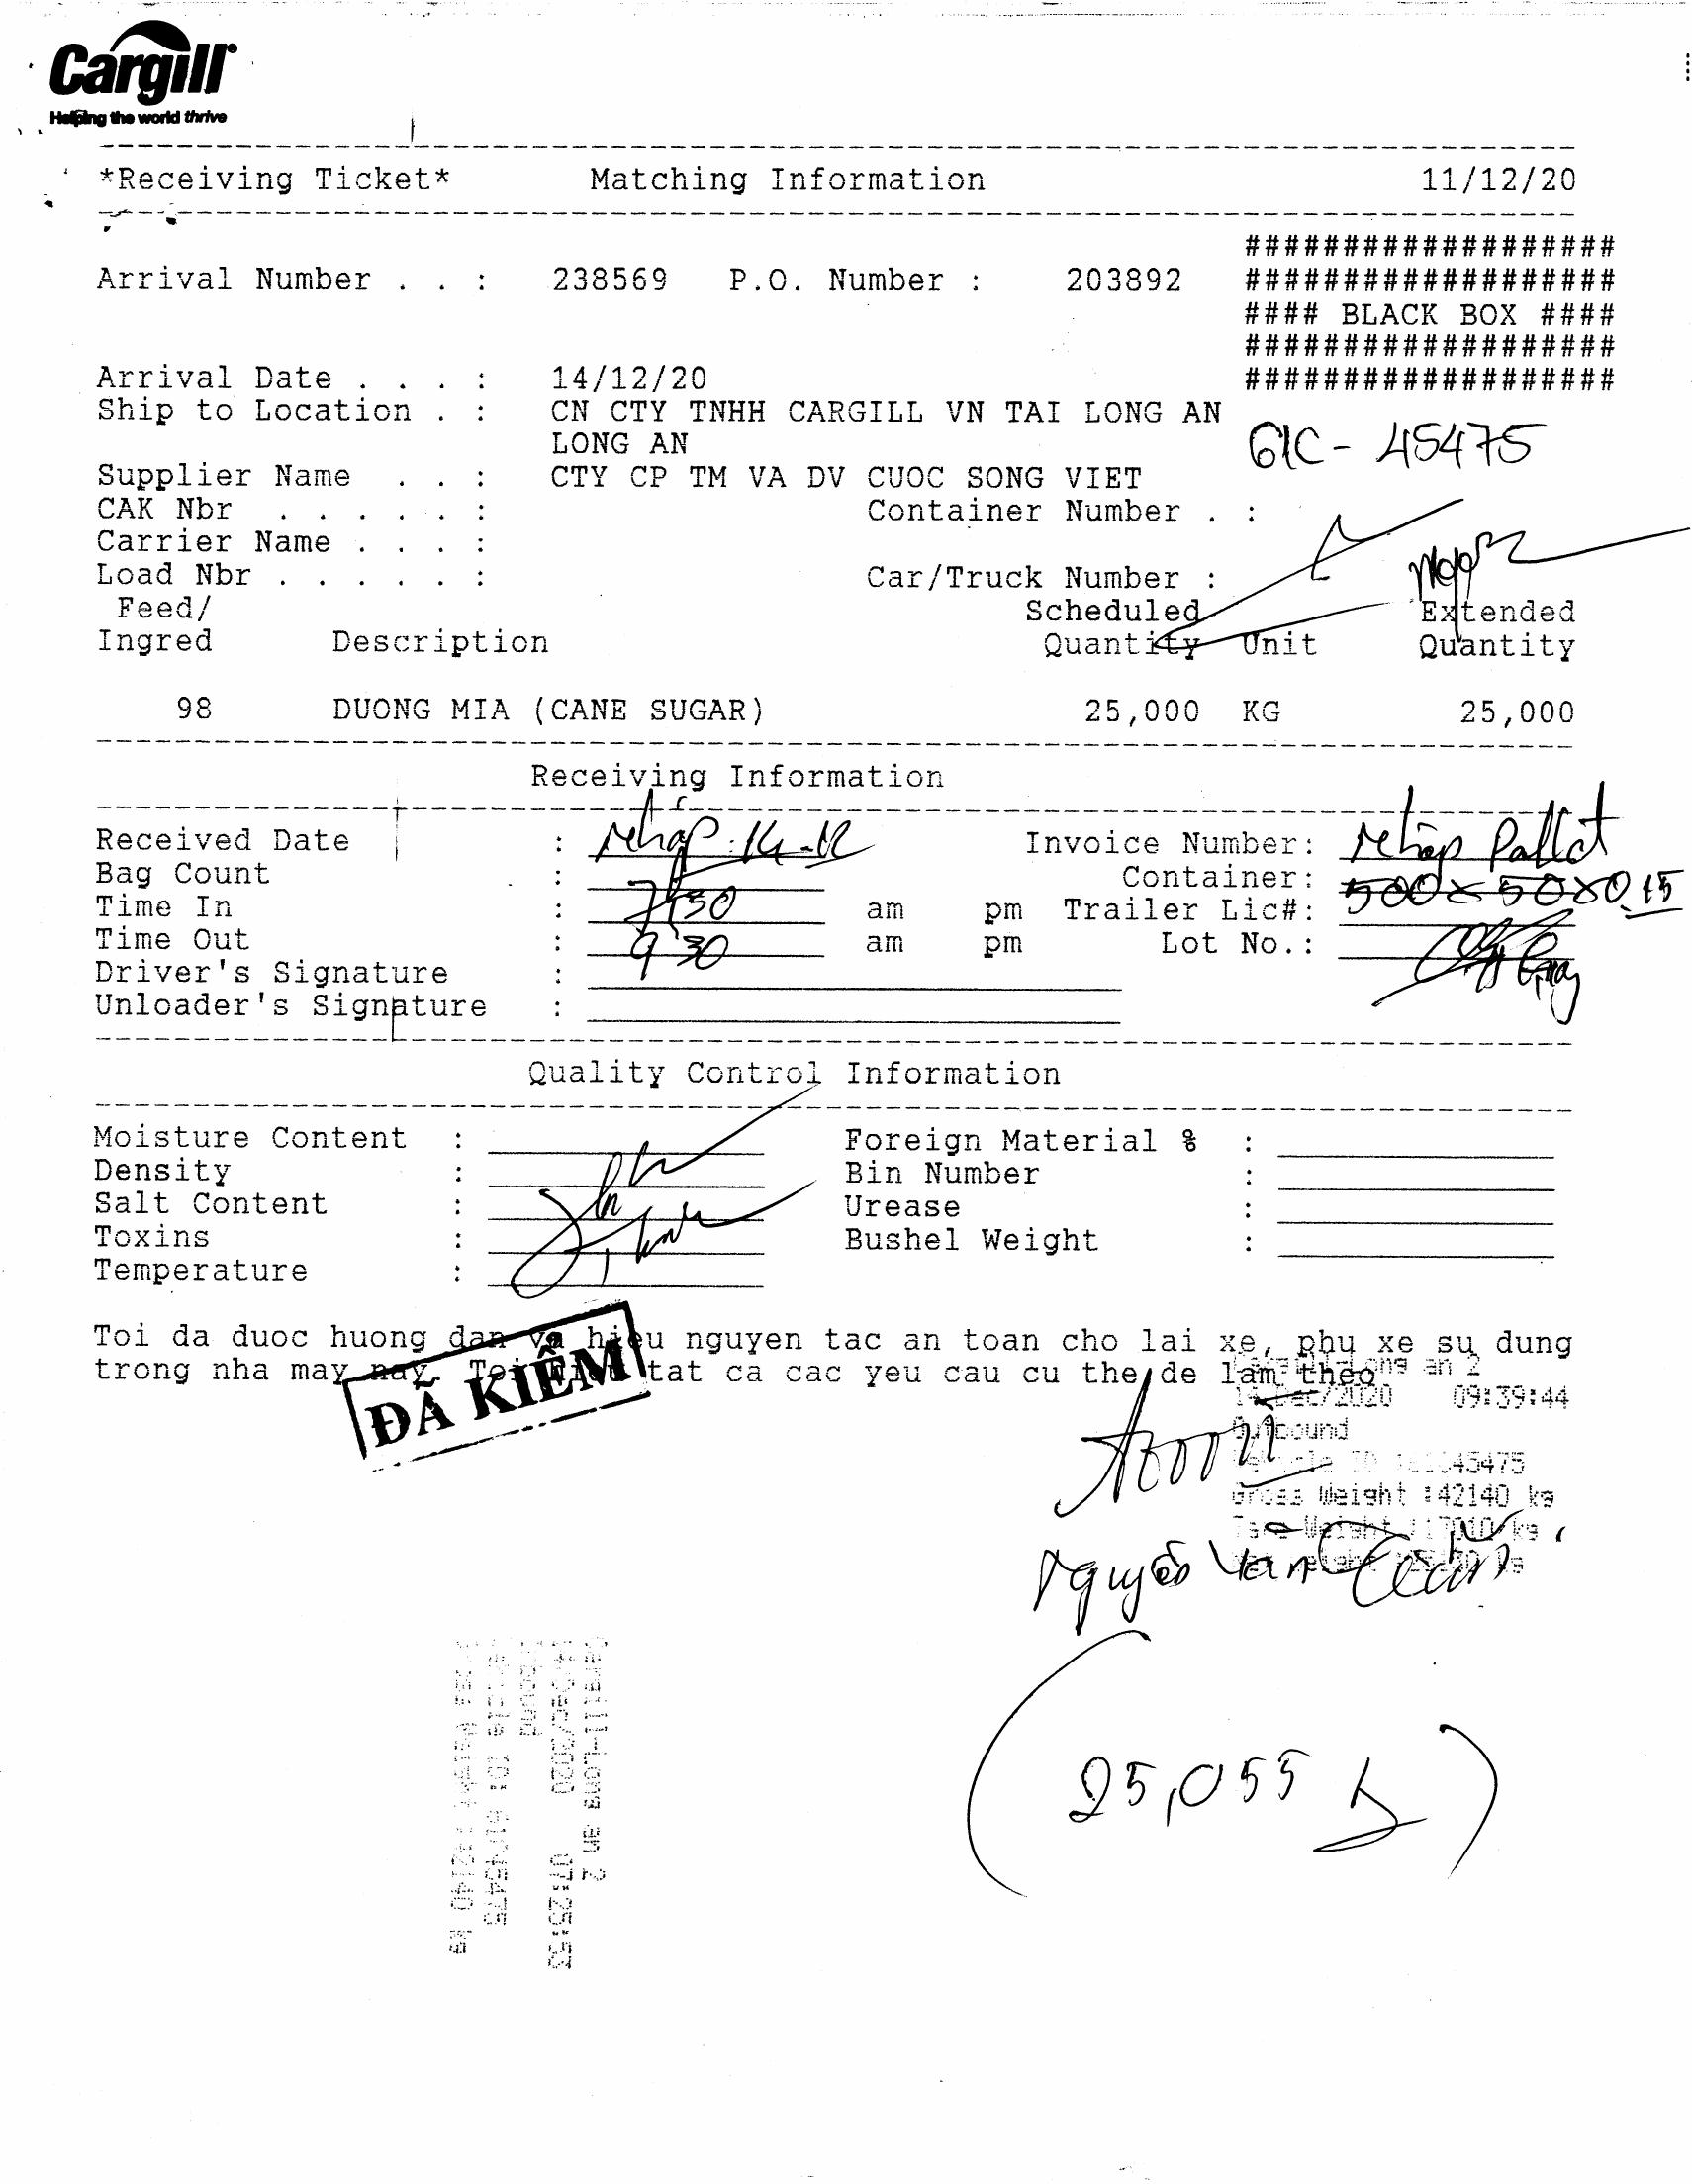 Cargill
Helping the world thrive
*Receiving Ticket* Matching Information 11/12/20
###################
Arrival Number . . : 238569 P.O. Number : 203892 ###################
#### BLACK BOX ####
###################
Arrival Date . . . : 14/12/20 ###################
Ship to Location . : CN CTY TNHH CARGILL VN TAI LONG AN
LONG AN
61C - 45475
Supplier Name . . : CTY CP TM VA DV CUOC SONG VIET
CAK Nbr . . . . . : Container Number . :
Carrier Name . . . :
Load Nbr . . . . . : Car/Truck Number :
Feed/ Scheduled Extended
Ingred Description Quantity Unit Quantity
98 DUONG MIA (CANE SUGAR) 25,000 KG 25,000
Receiving Information
Received Date : 14-12 Invoice Number: Pallet
Bag Count : Container: 500x50x0.15
Time In : 7h30 am pm Trailer Lic#:
Time Out : 9h30 am pm Lot No.:
Driver's Signature :
Unloader's Signature :
Quality Control Information
Moisture Content : Foreign Material % :
Density : Bin Number :
Salt Content : Urease :
Toxins : Bushel Weight :
Temperature :
Toi da duoc huong dan va hieu nguyen tac an toan cho lai xe, phu xe su dung
trong nha may nay. Toi tat ca cac yeu cau cu the de lam theo
ĐÃ KIỂM
an 2
14/Dec/2020 09:39:44
Outbound
45475
Gross Weight :42140 kg
Tare Weight :17010 kg
Nguyễn Văn
Cargill-Long an 2
14/Dec/2020 07:25:53
Inbound
Vehicle ID: 61C45475
Gross Weight :42140 kg
(25,055